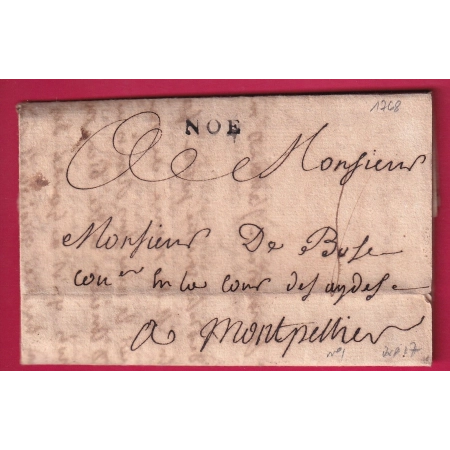 1768
NOE
A Monsieur
Monsieur De Bosc
con^er En la cour des aydes
a montpellier
n°1